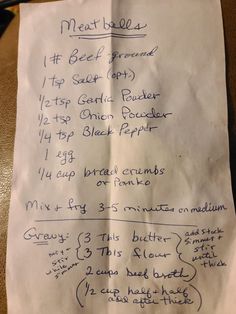 Meatballs
1# Beef ground
1 tsp Salt (opt.)
1/2 tsp Garlic Powder
1/2 tsp Onion Powder
1/4 tsp Black Pepper
1 egg
1/4 cup bread crumbs
or Panko
Mix + fry 3-5 minutes on medium
Gravy:
mix -
stir
while
simmer
3 Tbls butter
3 Tbls flour
add stock
simmer +
stir
until
thick
2 cups beef broth
(1/2 cup half + half
add after thick)